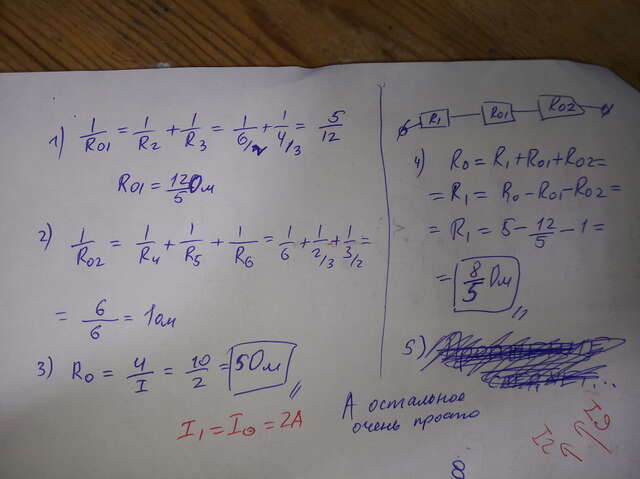 1) 1/R01 = 1/R2 + 1/R3 = 1/6/2 + 1/4/3 = 5/12
R01 = 12/5 Ом
2) 1/R02 = 1/R4 + 1/R5 + 1/R6 = 1/6 + 1/2/3 + 1/3/2 =
= 6/6 = 1 ом
3) R0 = 4/I = 10/2 = 5 Ом
I1 = I0 = 2А
R1 R01 R02
4) R0 = R1 + R01 + R02 =
= R1 = R0 - R01 - R02 =
= R1 = 5 - 12/5 - 1 =
= 8/5 Ом
5)
А остальное
очень просто